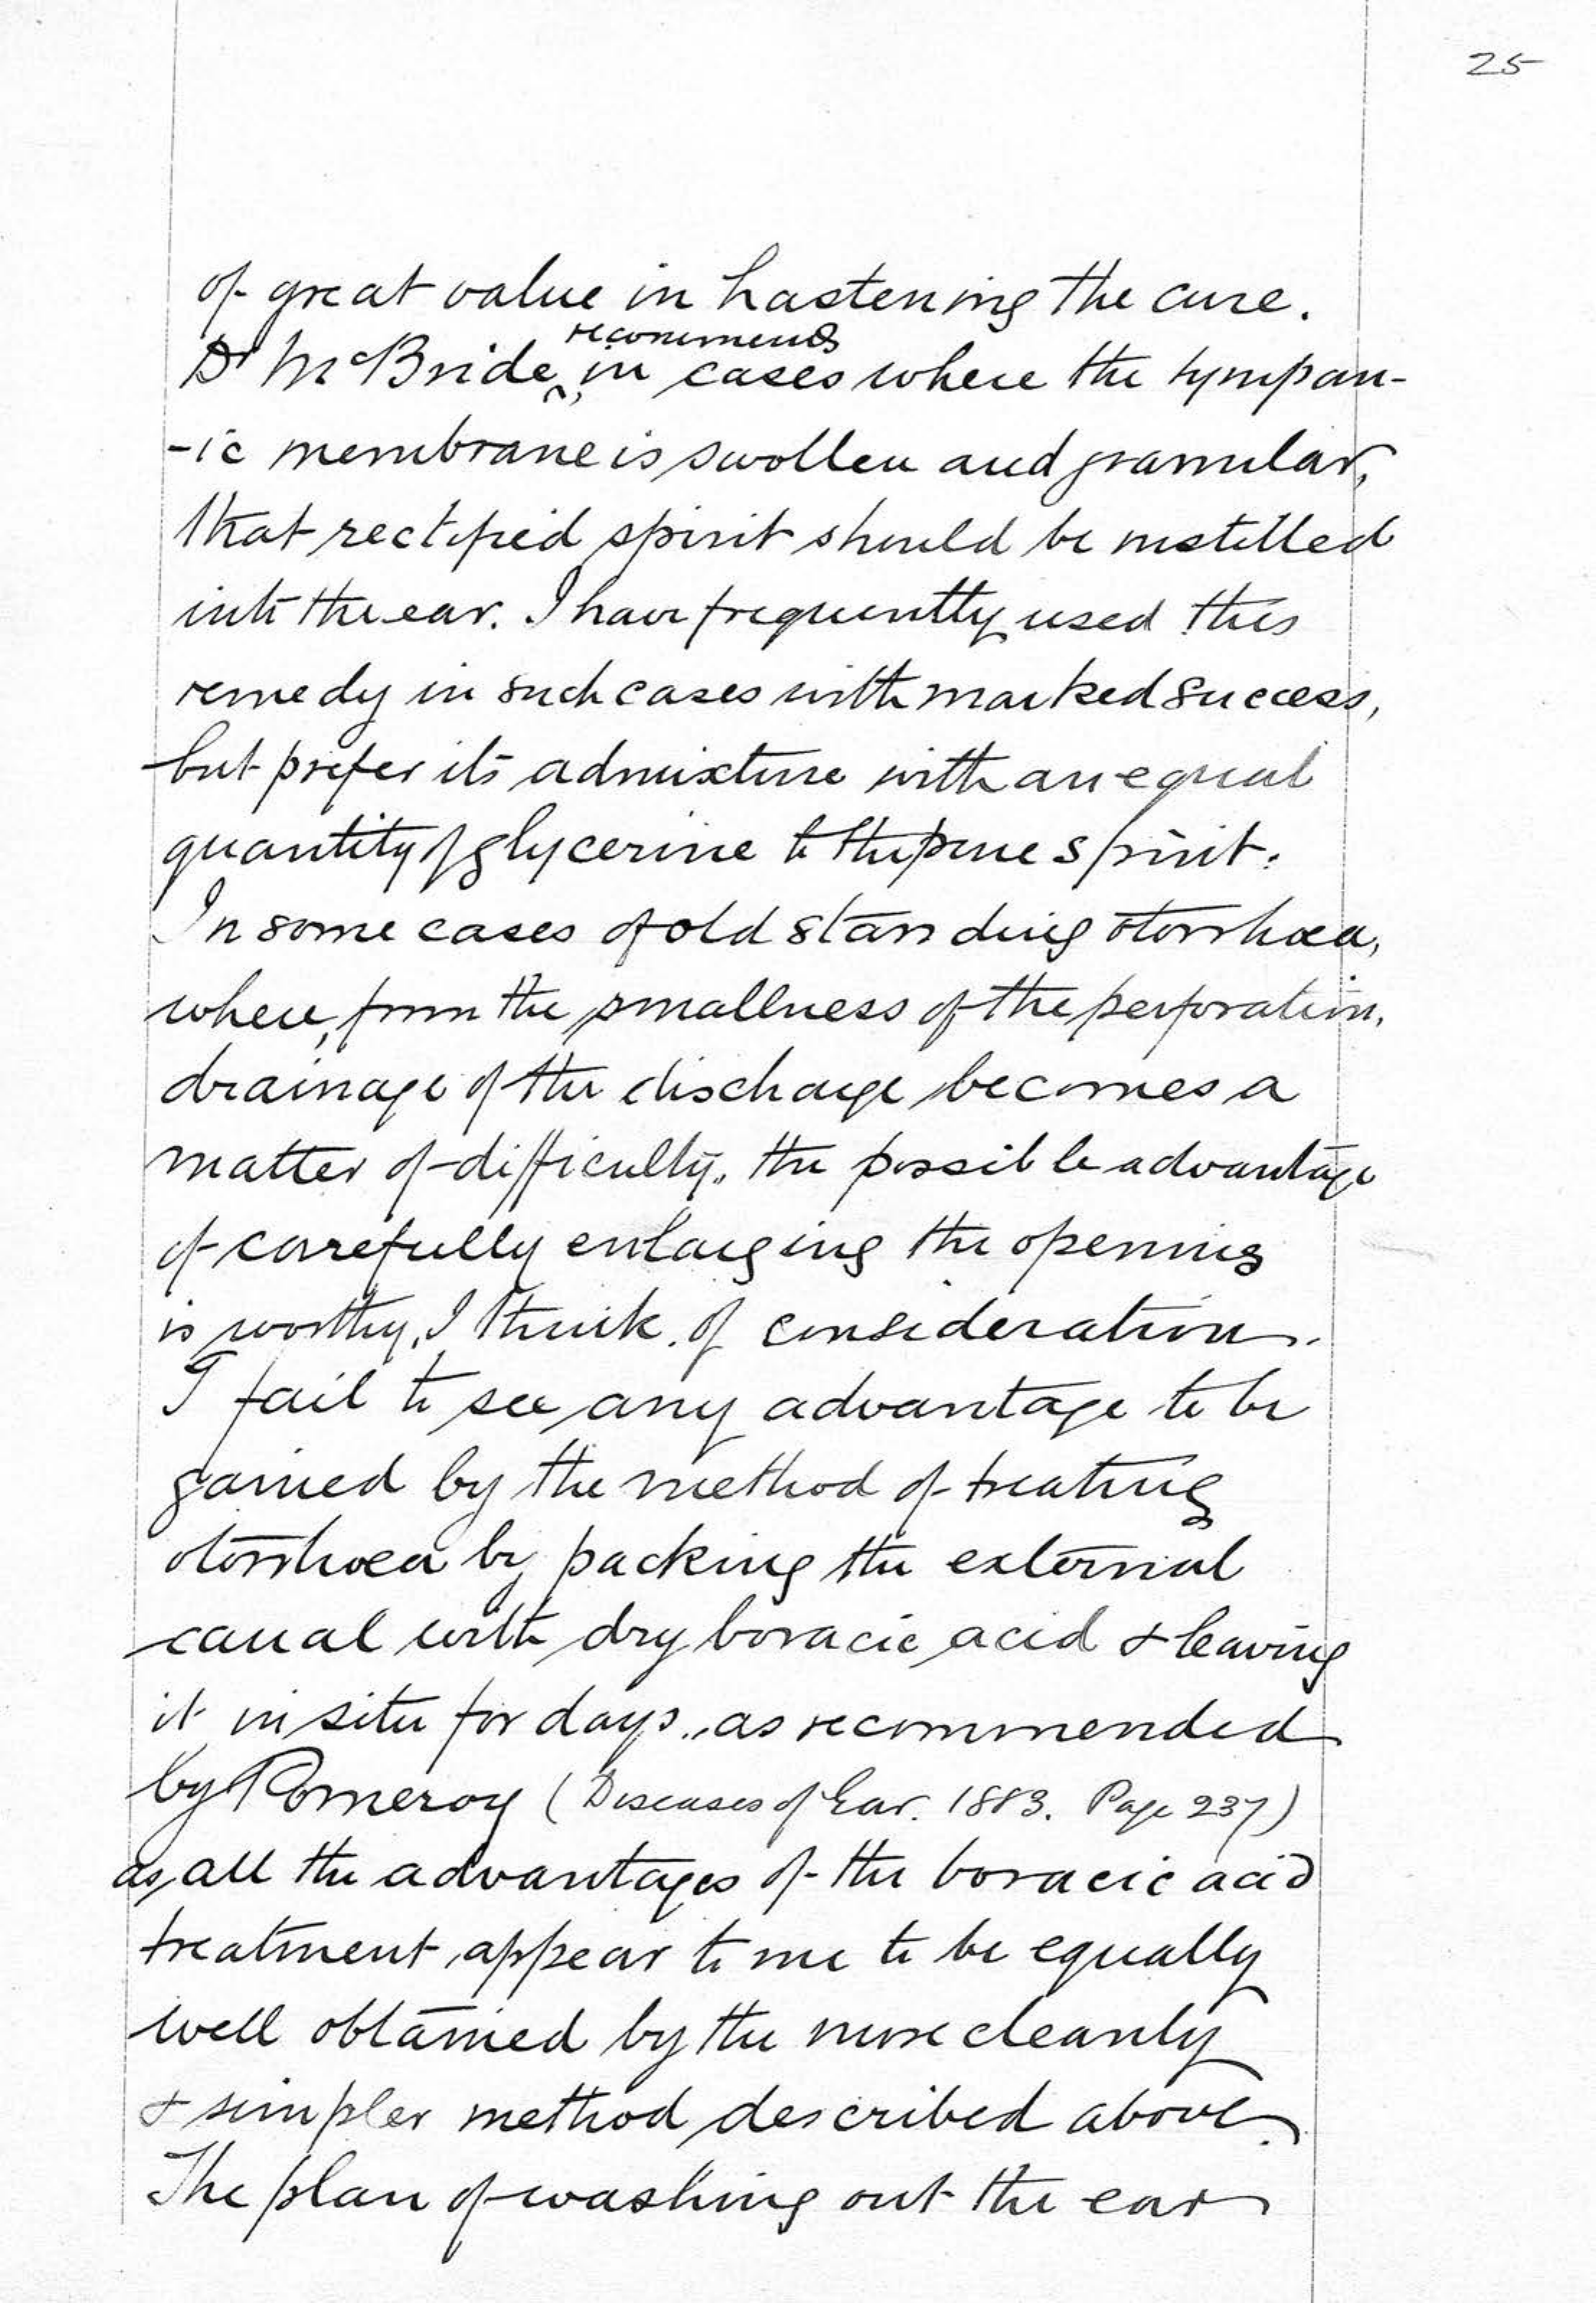 25
of great value in hastening the cure.
Dr McBride, recommends in cases where the tympan-
-ic membrane is swollen and granular,
that rectified spirit should be instilled
into the ear. I have frequently used this
remedy in such cases with marked success,
but prefer its admixture with an equal
quantity of glycerine to the pure spirit.
In some cases of old standing otorrhoea,
where, from the smallness of the perforation,
drainage of the discharge becomes a
matter of difficulty, the possible advantage
of carefully enlarging the opening
is worthy, I think, of consideration.
I fail to see any advantage to be
gained by the method of treating
otorrhoea by packing the external
canal with dry boracic acid & leaving
it in situ for days, as recommended
by Pomeroy (Diseases of Ear. 1883. Page 237)
as all the advantages of the boracic acid
treatment appear to me to be equally
well obtained by the more cleanly
& simpler method described above.
The plan of washing out the ear